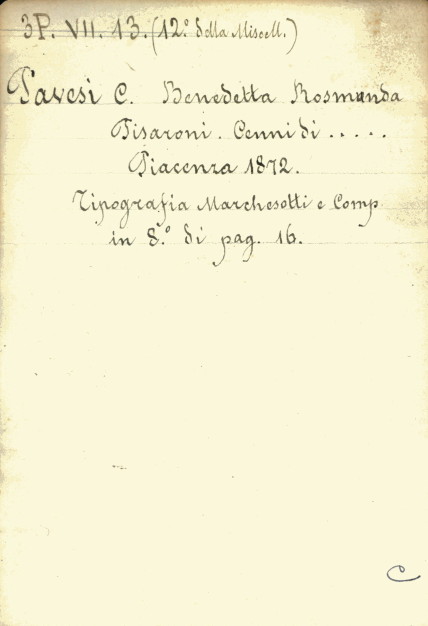 3P. VII. 13. (12.º della Miscell.)
Pavesi C. Benedetta Rosmunda
Pisaroni. Cenni di .....
Piacenza 1872.
Tipografia Marchesotti e Comp
in 8.º di pag. 16.
C